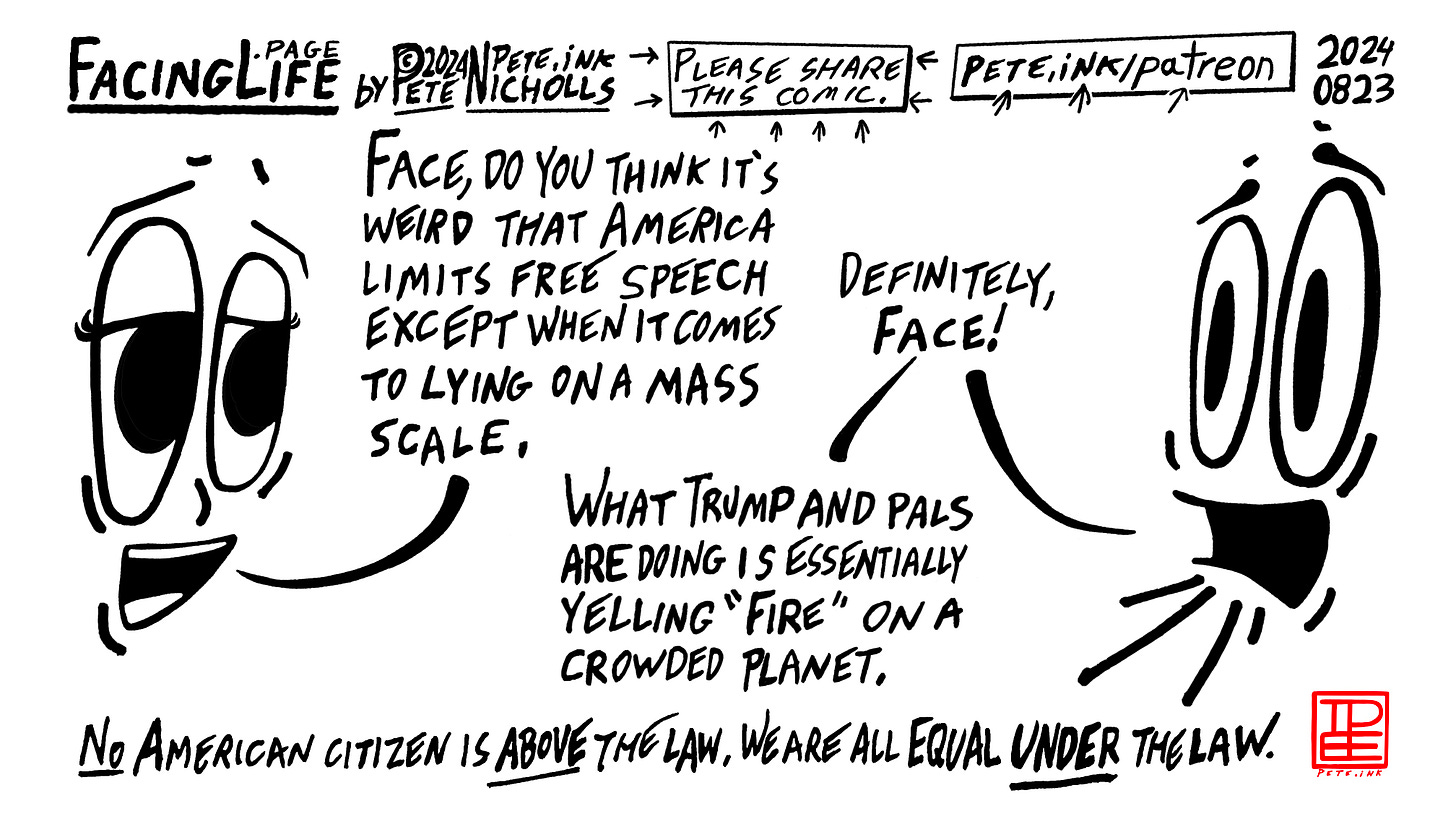 FACINGLIFE.PAGE
BY PETE NICHOLLS
©2024 PETE.INK
PLEASE SHARE
THIS COMIC.
PETE.INK/patreon
2024
0823
FACE, DO YOU THINK IT'S
WEIRD THAT AMERICA
LIMITS FREE SPEECH
EXCEPT WHEN IT COMES
TO LYING ON A MASS
SCALE.
DEFINITELY,
FACE!
WHAT TRUMP AND PALS
ARE DOING IS ESSENTIALLY
YELLING "FIRE" ON A
CROWDED PLANET.
NO AMERICAN CITIZEN IS ABOVE THE LAW. WE ARE ALL EQUAL UNDER THE LAW.
PETE.INK